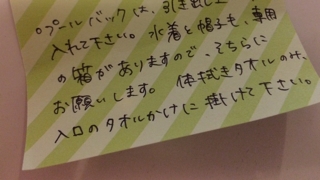 ○プールバックは、引き出し上
入れて下さい。水着と帽子も、専用
の箱がありますので、そちらに
お願いします。体拭きタオルのみ、
入口のタオルかけに掛けて下さい。